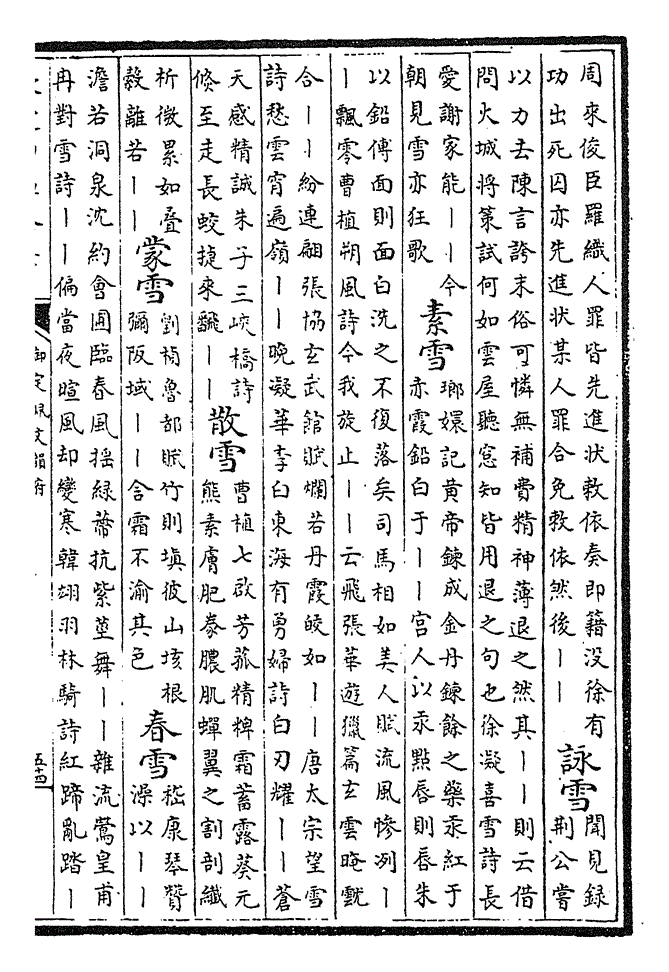 周來俊臣羅織人罪皆先進狀敕依奏即籍沒徐有
功出死囚亦先進狀某人罪合免敕依然後丨丨
詠雪
聞見錄
荊公嘗
以力去陳言誇末俗可憐無補費精神薄退之然其丨丨則云借
問火城將策試何如雲屋聽窻知皆用退之句也徐凝喜雪詩長
愛謝家能丨丨今
朝見雪亦狂歌
素雪
瑯嬛記黃帝鍊成金丹鍊餘之藥汞紅于
赤霞鉛白于丨丨宮人以汞點唇則唇朱
以鉛傅面則面白洗之不復落矣司馬相如美人賦流風慘冽丨
丨飄零曹植朔風詩今我旋止丨丨云飛張華遊獵篇玄雲晻靆
合丨丨紛連翩張協玄武館賦爛若丹霞皎如丨丨唐太宗望雪
詩愁雲宵遍嶺丨丨晚凝華李白東海有勇婦詩白刃耀丨丨蒼
天感精誠朱子三峽橋詩
倐至走長蛟捷來翻丨丨
散雪
曹植七啟芳菰精粺霜蓄露葵元
熊素膚肥豢膿肌蟬翼之割剖纖
析微累如叠
縠離若丨丨
蒙雪
劉楨魯都賦竹則塡彼山垓根
彌阪域丨丨含霜不渝其色
春雪
嵇康琴贊
澡以丨丨
澹若洞泉沈約會圃臨春風摇緑蔕抗紫莖舞丨丨雜流鶯皇甫
冉對雪詩丨丨偏當夜暄風却變寒韓翃羽林騎詩紅蹄亂踏丨
御定佩文韻府
五十四